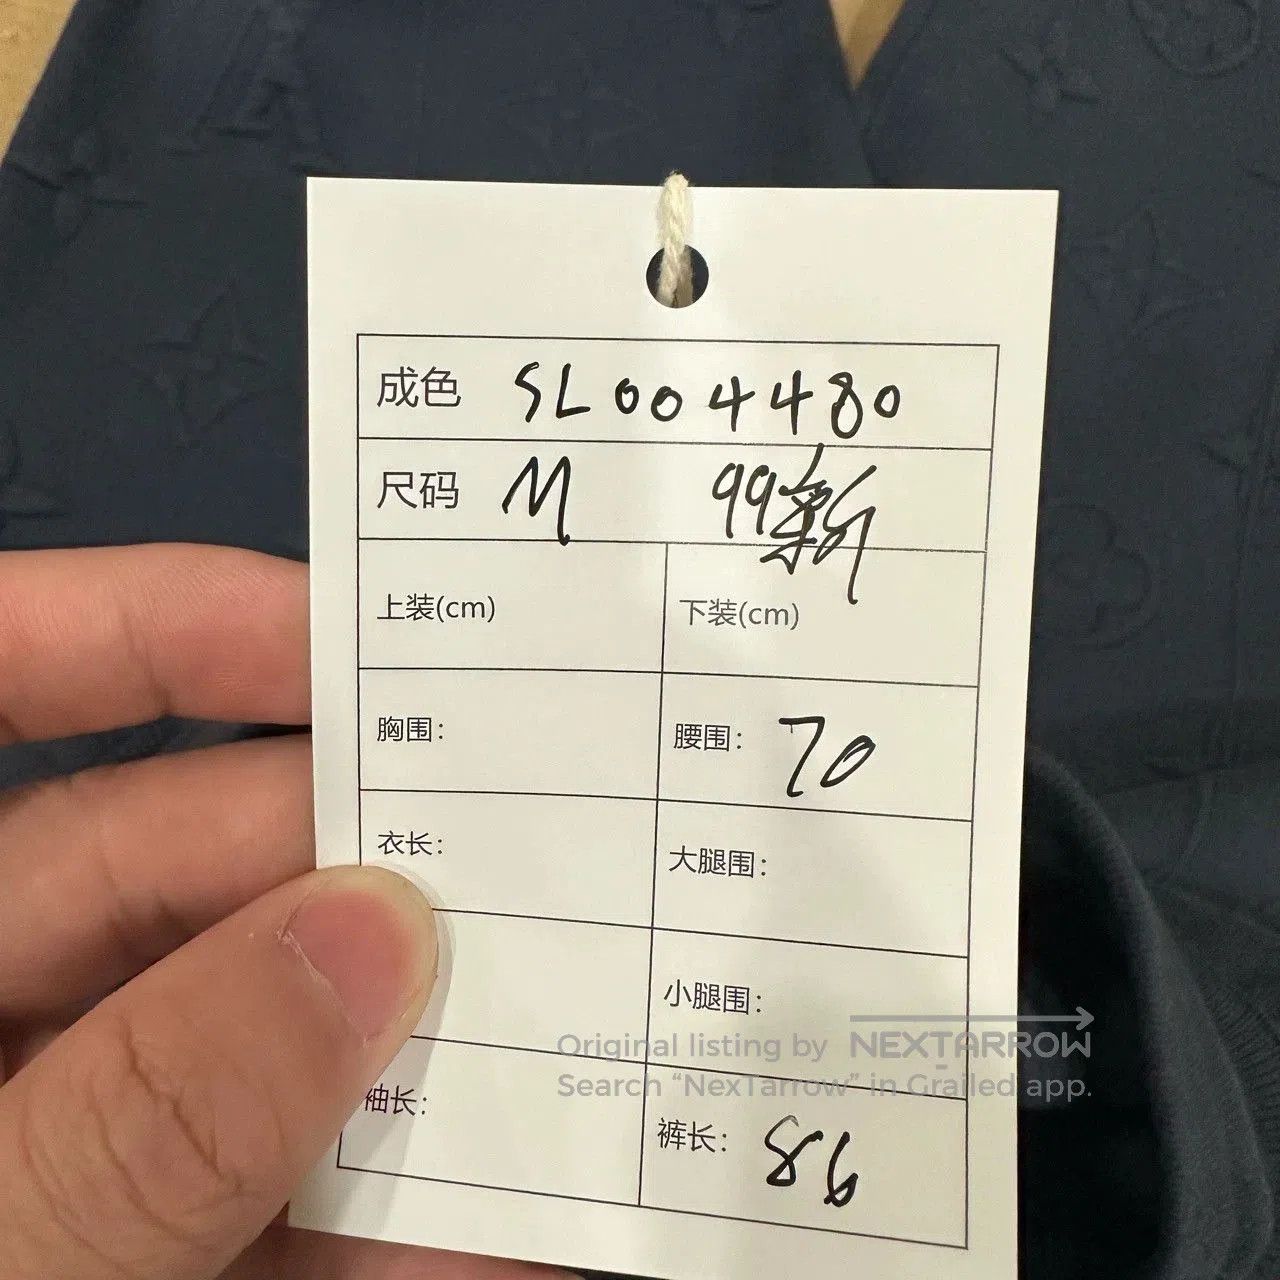 成色 SL004480
尺码 M 99新
上装(cm) 下装(cm)
胸围: 腰围: 70
衣长: 大腿围:
小腿围:
Original listing by NEXTARROW
Search “NexTarrow” in Grailed app.
袖长: 裤长: